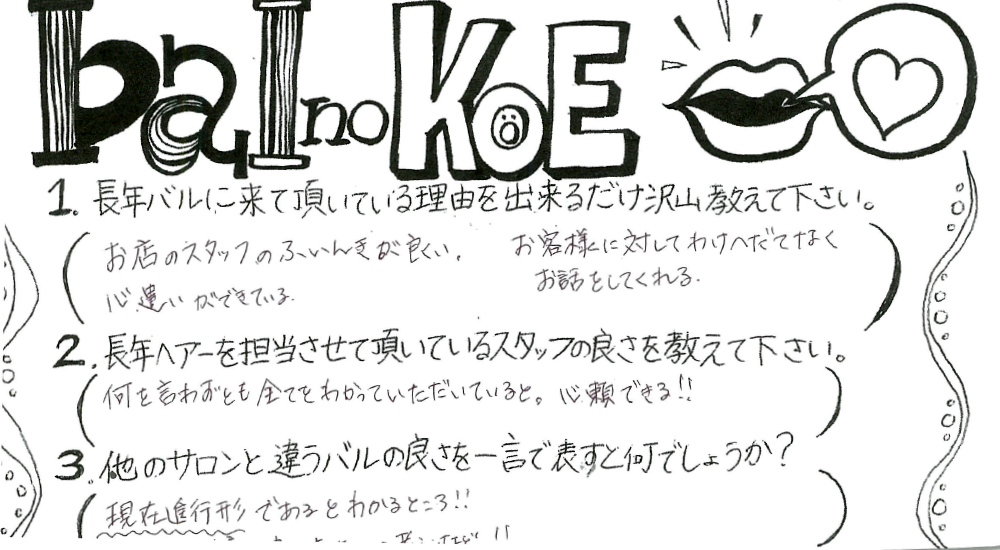 bal no KOE
1. 長年バルに来て頂いている理由を出来るだけ沢山教えて下さい。
お店のスタッフのふいんきが良くい。
心遣いができている。
お客様に対してわけへだてなく
お話をしてくれる。
2. 長年ヘアーを担当させて頂いているスタッフの良さを教えて下さい。
何を言わずとも全てをわかっていただいていると。心頼できる!!
3. 他のサロンと違うバルの良さを一言で表すと何でしょうか?
現在進行形であるとわかるところ!!